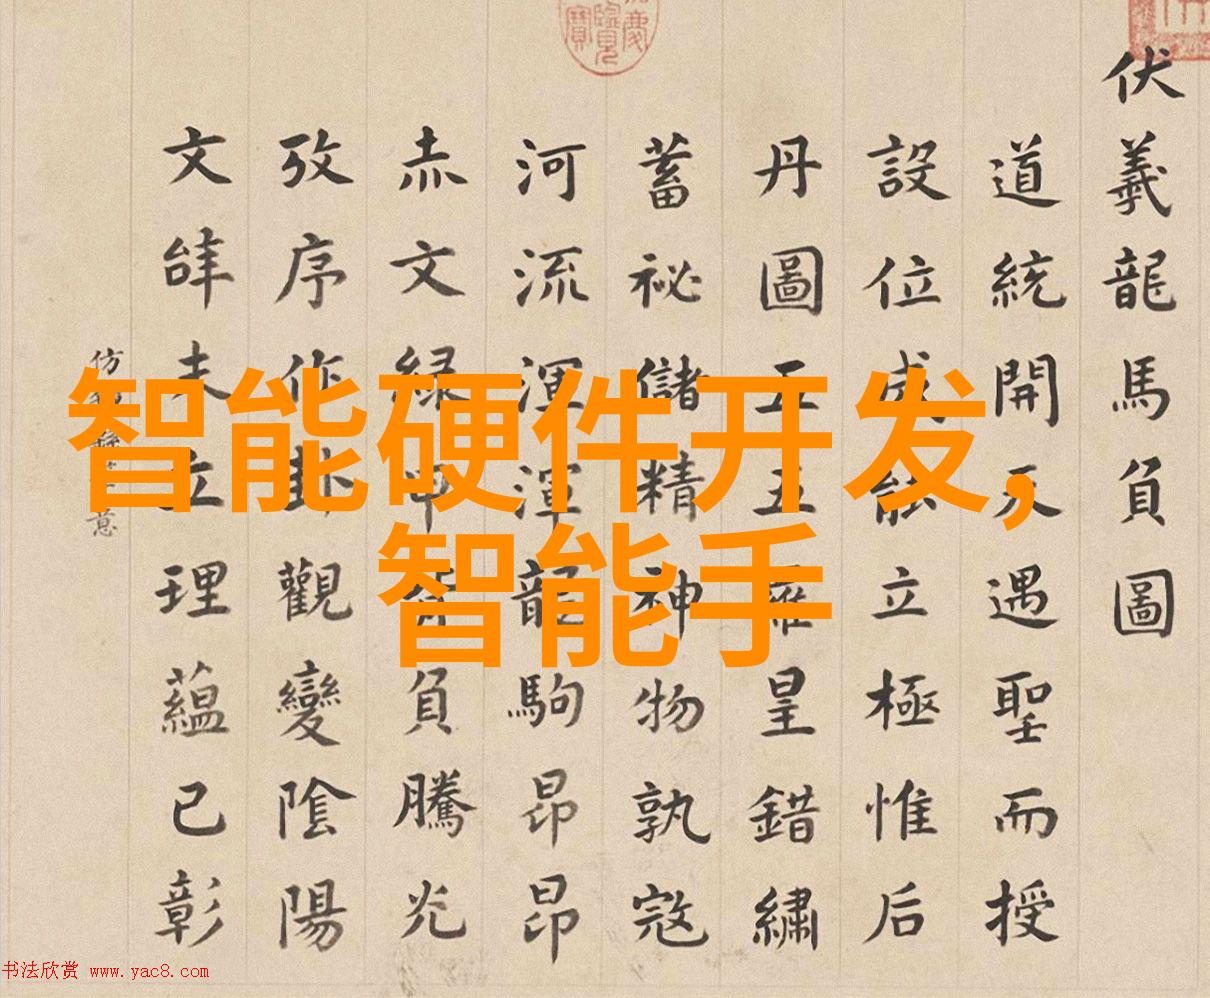 伏羲龍馬負圖
道統開天遇聖而授
設位成能立極惟后
丹圖五五羅皇錯繡
蓄祕儲精神物孰寇
河流渾渾龍駒昂昂
赤文緑甲背負騰光
攷序作卦觀變陰陽
文辞未立理蘊已彰
智能硬件开发，
智能手
书法欣赏 www.yac8.com